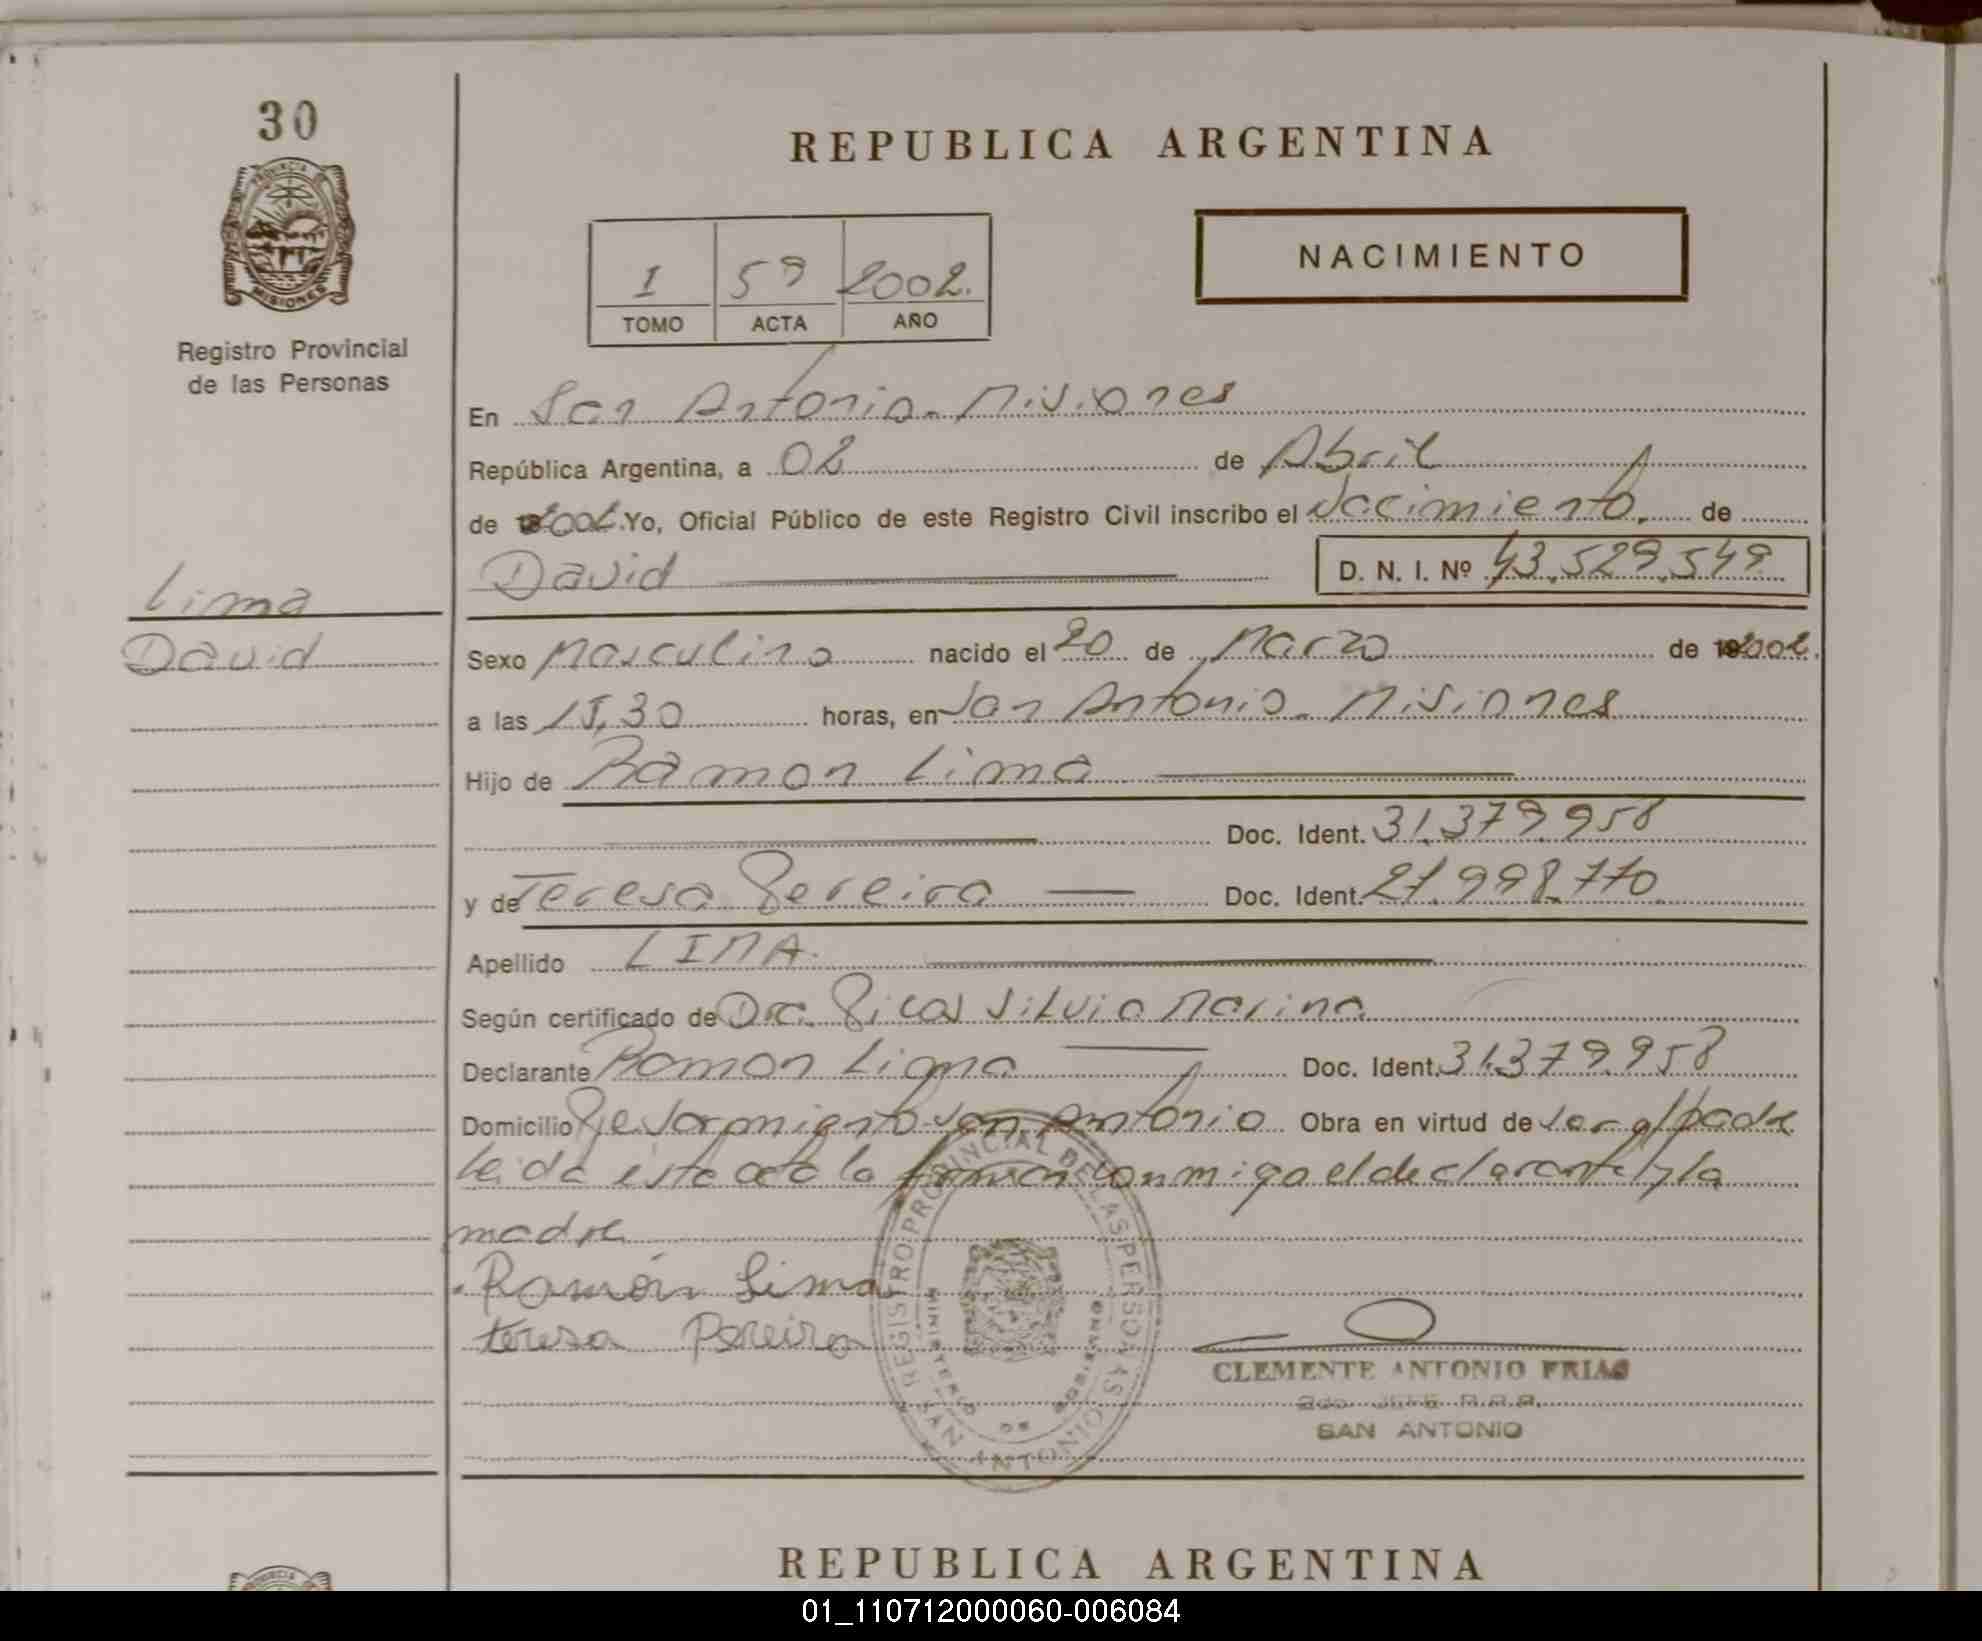 30
PROVINCIA DE
MISIONES
Registro Provincial
de las Personas
REPUBLICA ARGENTINA
NACIMIENTO
I 59 2002.
TOMO ACTA AÑO
En San Antonio. Misiones
República Argentina, a 02 de Abril
de 2002. Yo, Oficial Público de este Registro Civil inscribo el Nacimiento. de
David D. N. I. Nº 43.529.549
Lima
David
Sexo Masculino nacido el 20 de Marzo de 2002.
a las 15,30 horas, en San Antonio. Misiones
Hijo de Ramon Lima
Doc. Ident. 31.379.958
y de Teresa Pereira Doc. Ident. 27.998.770
Apellido LIMA.
Según certificado de Dra. Silvia Marina
Declarante Ramon Lima Doc. Ident. 31.379.958
Domicilio San Antonio Obra en virtud de ser el padre
leida esta acta la firman conmigo el declarante y la
madre
Ramón Lima
teresa Pereira
REGISTRO PROVINCIAL DE LAS PERSONAS
MINISTERIO DE GOBIERNO
SAN ANTONIO
CLEMENTE ANTONIO FRIAS
2do JEFE R.P.P.
SAN ANTONIO
REPUBLICA ARGENTINA
01_110712000060-006084